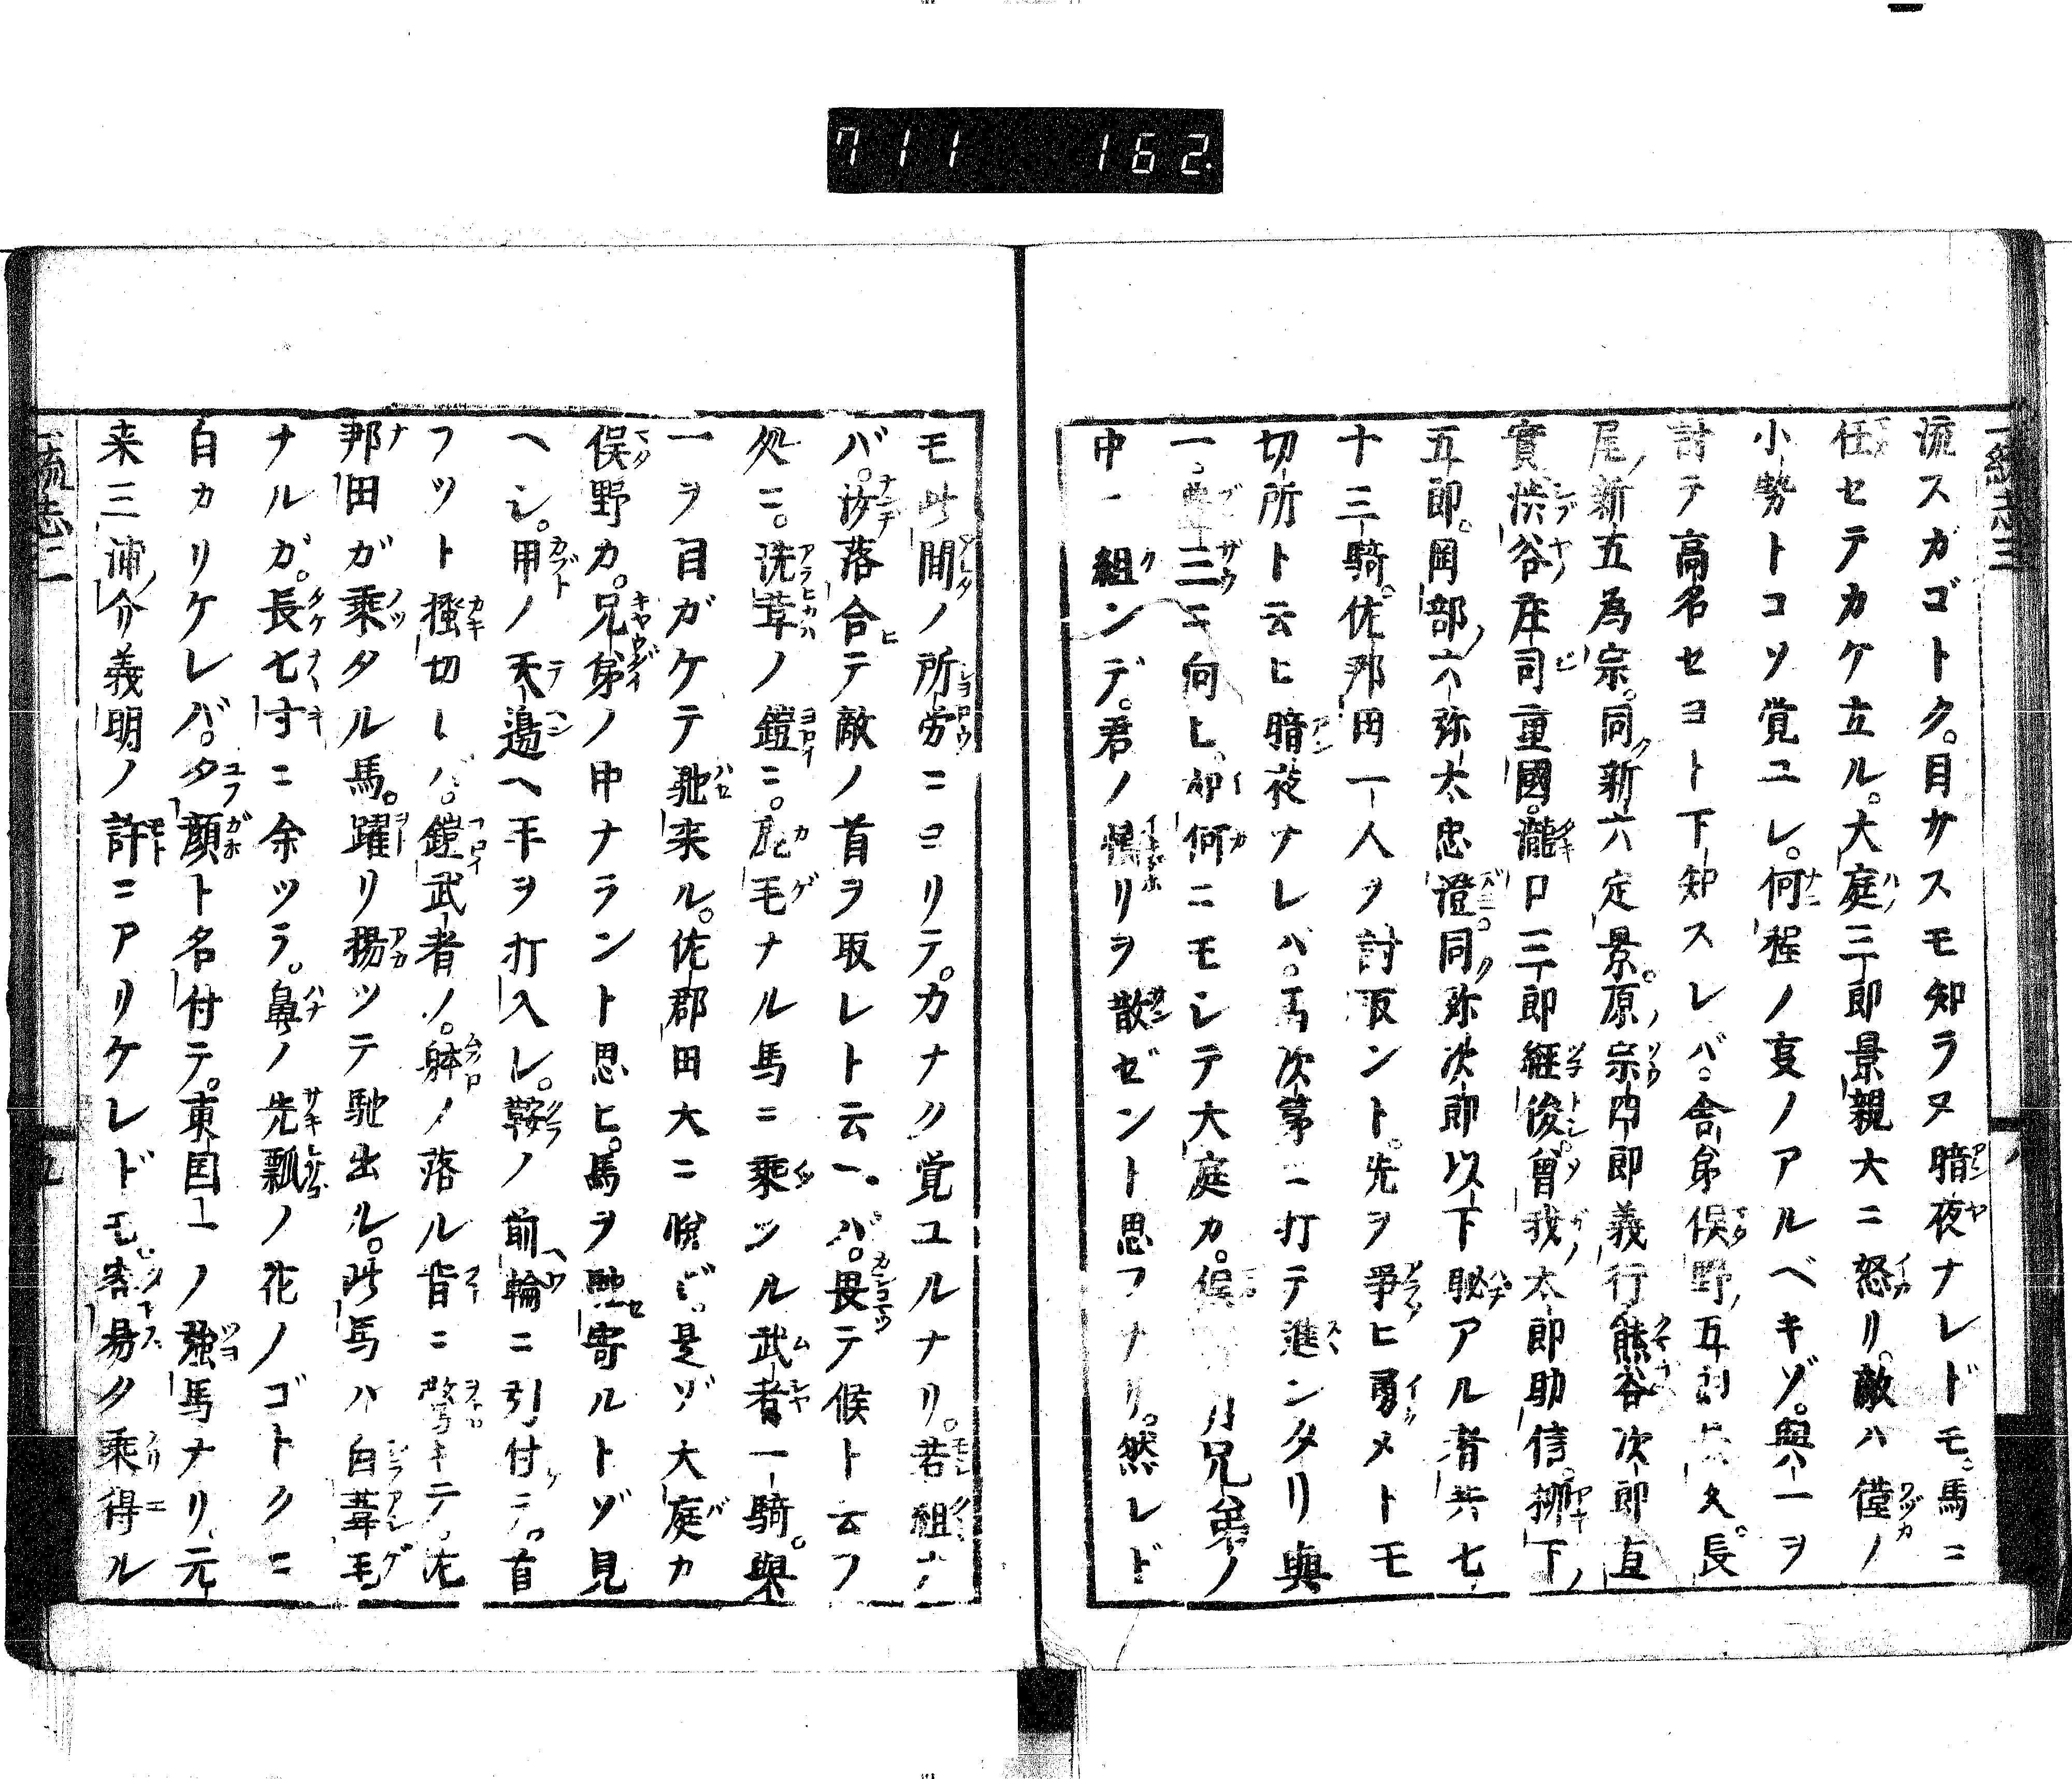 711 162
流スガゴトク。目サスモ知ラヌ暗夜ナレドモ。馬ニ
任セテカケ立ル。大庭三郎景親大ニ怒リ。敵ハ僅ノ
小勢トコソ覚ユレ。何程ノ支ノアルベキゾ。與一ヲ
討テ高名セヨト下知スレバ。舎弟俣野五郎 久。長
尾新五為宗。同新六定景。原宗四郎義行熊谷次郎直
實渋谷庄司重國。瀧口三郎経俊。曽我太郎助信。柳下
五郎。岡部六弥太忠澄。同弥次郎以下聡アル者共七
十三騎。佐那田一人ヲ討取ント。先ヲ争ヒ勇メトモ
切所ト云ヒ暗夜ナレバ。馬次第ニ打テ進ンタリ與
一。 三ニ向ヒ。如何ニモシテ大庭カ。俣 兄弟ノ
中一組ンデ。君ノ憤リヲ散ゼント思フナリ。然レド
モ此間ノ所労ニヨリテ。カナク覚ユルナリ。若組ナ
バ。汝落合テ敵ノ首ヲ取レト云ヘバ。畏テ候ト云フ
処ニ。洗革ノ鎧ニ。鹿毛ナル馬ニ乗ツル武者一騎。與
一ヲ目ガケテ馳来ル。佐那田大ニ悦ビ。是ゾ大庭カ
俣野カ。兄弟ノ中ナラント思ヒ。馬ヲ馳寄ルトゾ見
ヘシ。甲ノ天邉ヘ手ヲ打入レ。鞍ノ前輪ニ引付テ。首
フツト掻切レバ。鎧武者ノ。体ノ落ル皆ニ驚キテ。佐
那田ガ乗タル馬。躍リ揚ツテ馳出ル。此馬ハ白葦毛
ナルガ。長七寸ニ余ツラ。鼻ノ先瓢ノ花ノゴトクニ
白カリケレバ。夕顔ト名付テ。東国一ノ強馬ナリ。元
来三浦介義明ノ許ニアリケレドモ。容易ク乗得ル